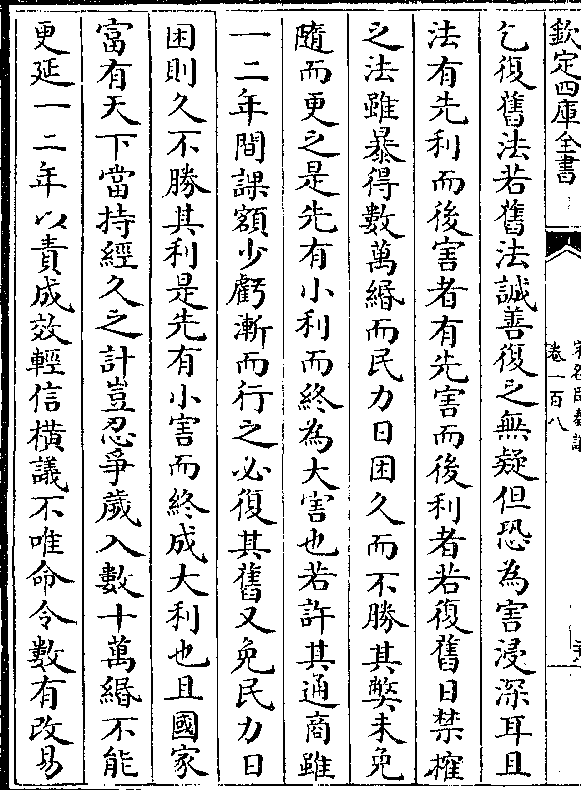 欽定四庫全書
卷一百八
乞復舊法若舊法誠善復之無疑但恐為害浸深耳且
法有先利而後害者有先害而後利者若復舊日禁榷
之法雖暴得數萬緡而民力日困久而不勝其弊未免
隨而更之是先有小利而終為大害也若許其通商雖
一二年間課額少虧漸而行之必復其舊又免民力日
困則久不勝其利是先有小害而終成大利也且國家
富有天下當持經久之計豈忍爭歲入數十萬緡不能
更延一二年以責成效輕信橫議不唯命令數有改易